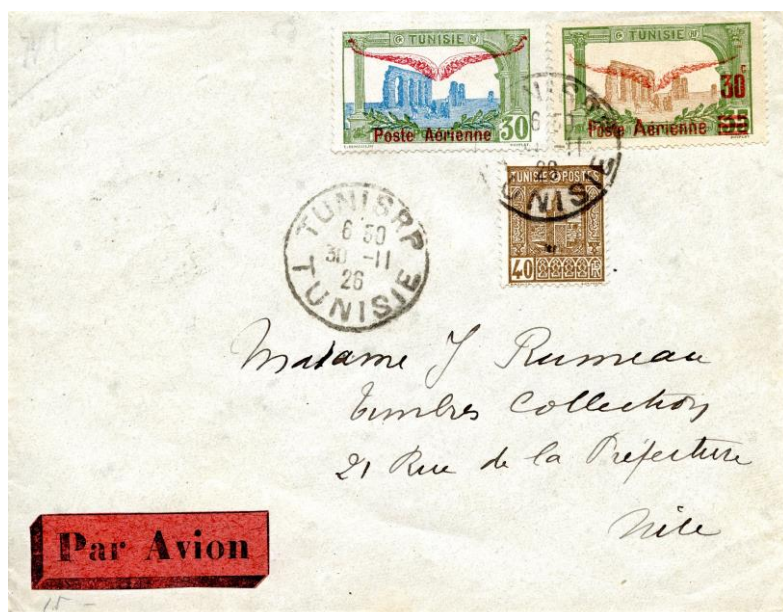 TUNISIE
Poste Aérienne 30
TUNISIE
30 c
Poste Aérienne 35
TUNIS RP
6 50
-11
TUNISIE
TUNISIE POSTES
40 RF
TUNIS RP
6 50
30 -11
26
TUNISIE
Madame J Rumeau
Timbres Collection
21 Rue de la Préfecture
Nice
Par Avion
15 -